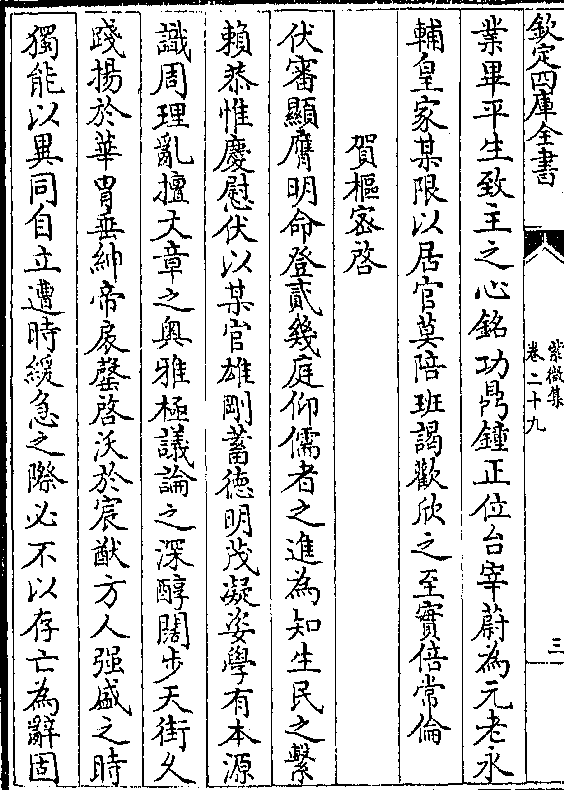 欽定四庫全書
紫微集
卷二十九
三
業畢平生致主之心銘功鼎鐘正位台宰蔚為元老永
輔皇家某限以居官莫陪班謁歡欣之至實倍常倫
賀樞宻啓
伏審顯膺明命登貳幾庭仰儒者之進為知生民之繫
賴恭惟慶慰伏以某官雄剛蓄德明茂凝姿學有本源
識周理亂擅文章之奥雅極議論之深醇闊步天街久
踐揚於華胄垂紳帝扆罄啓沃於宸猷方人强盛之時
獨能以異同自立遭時緩急之際必不以存亡為辭固